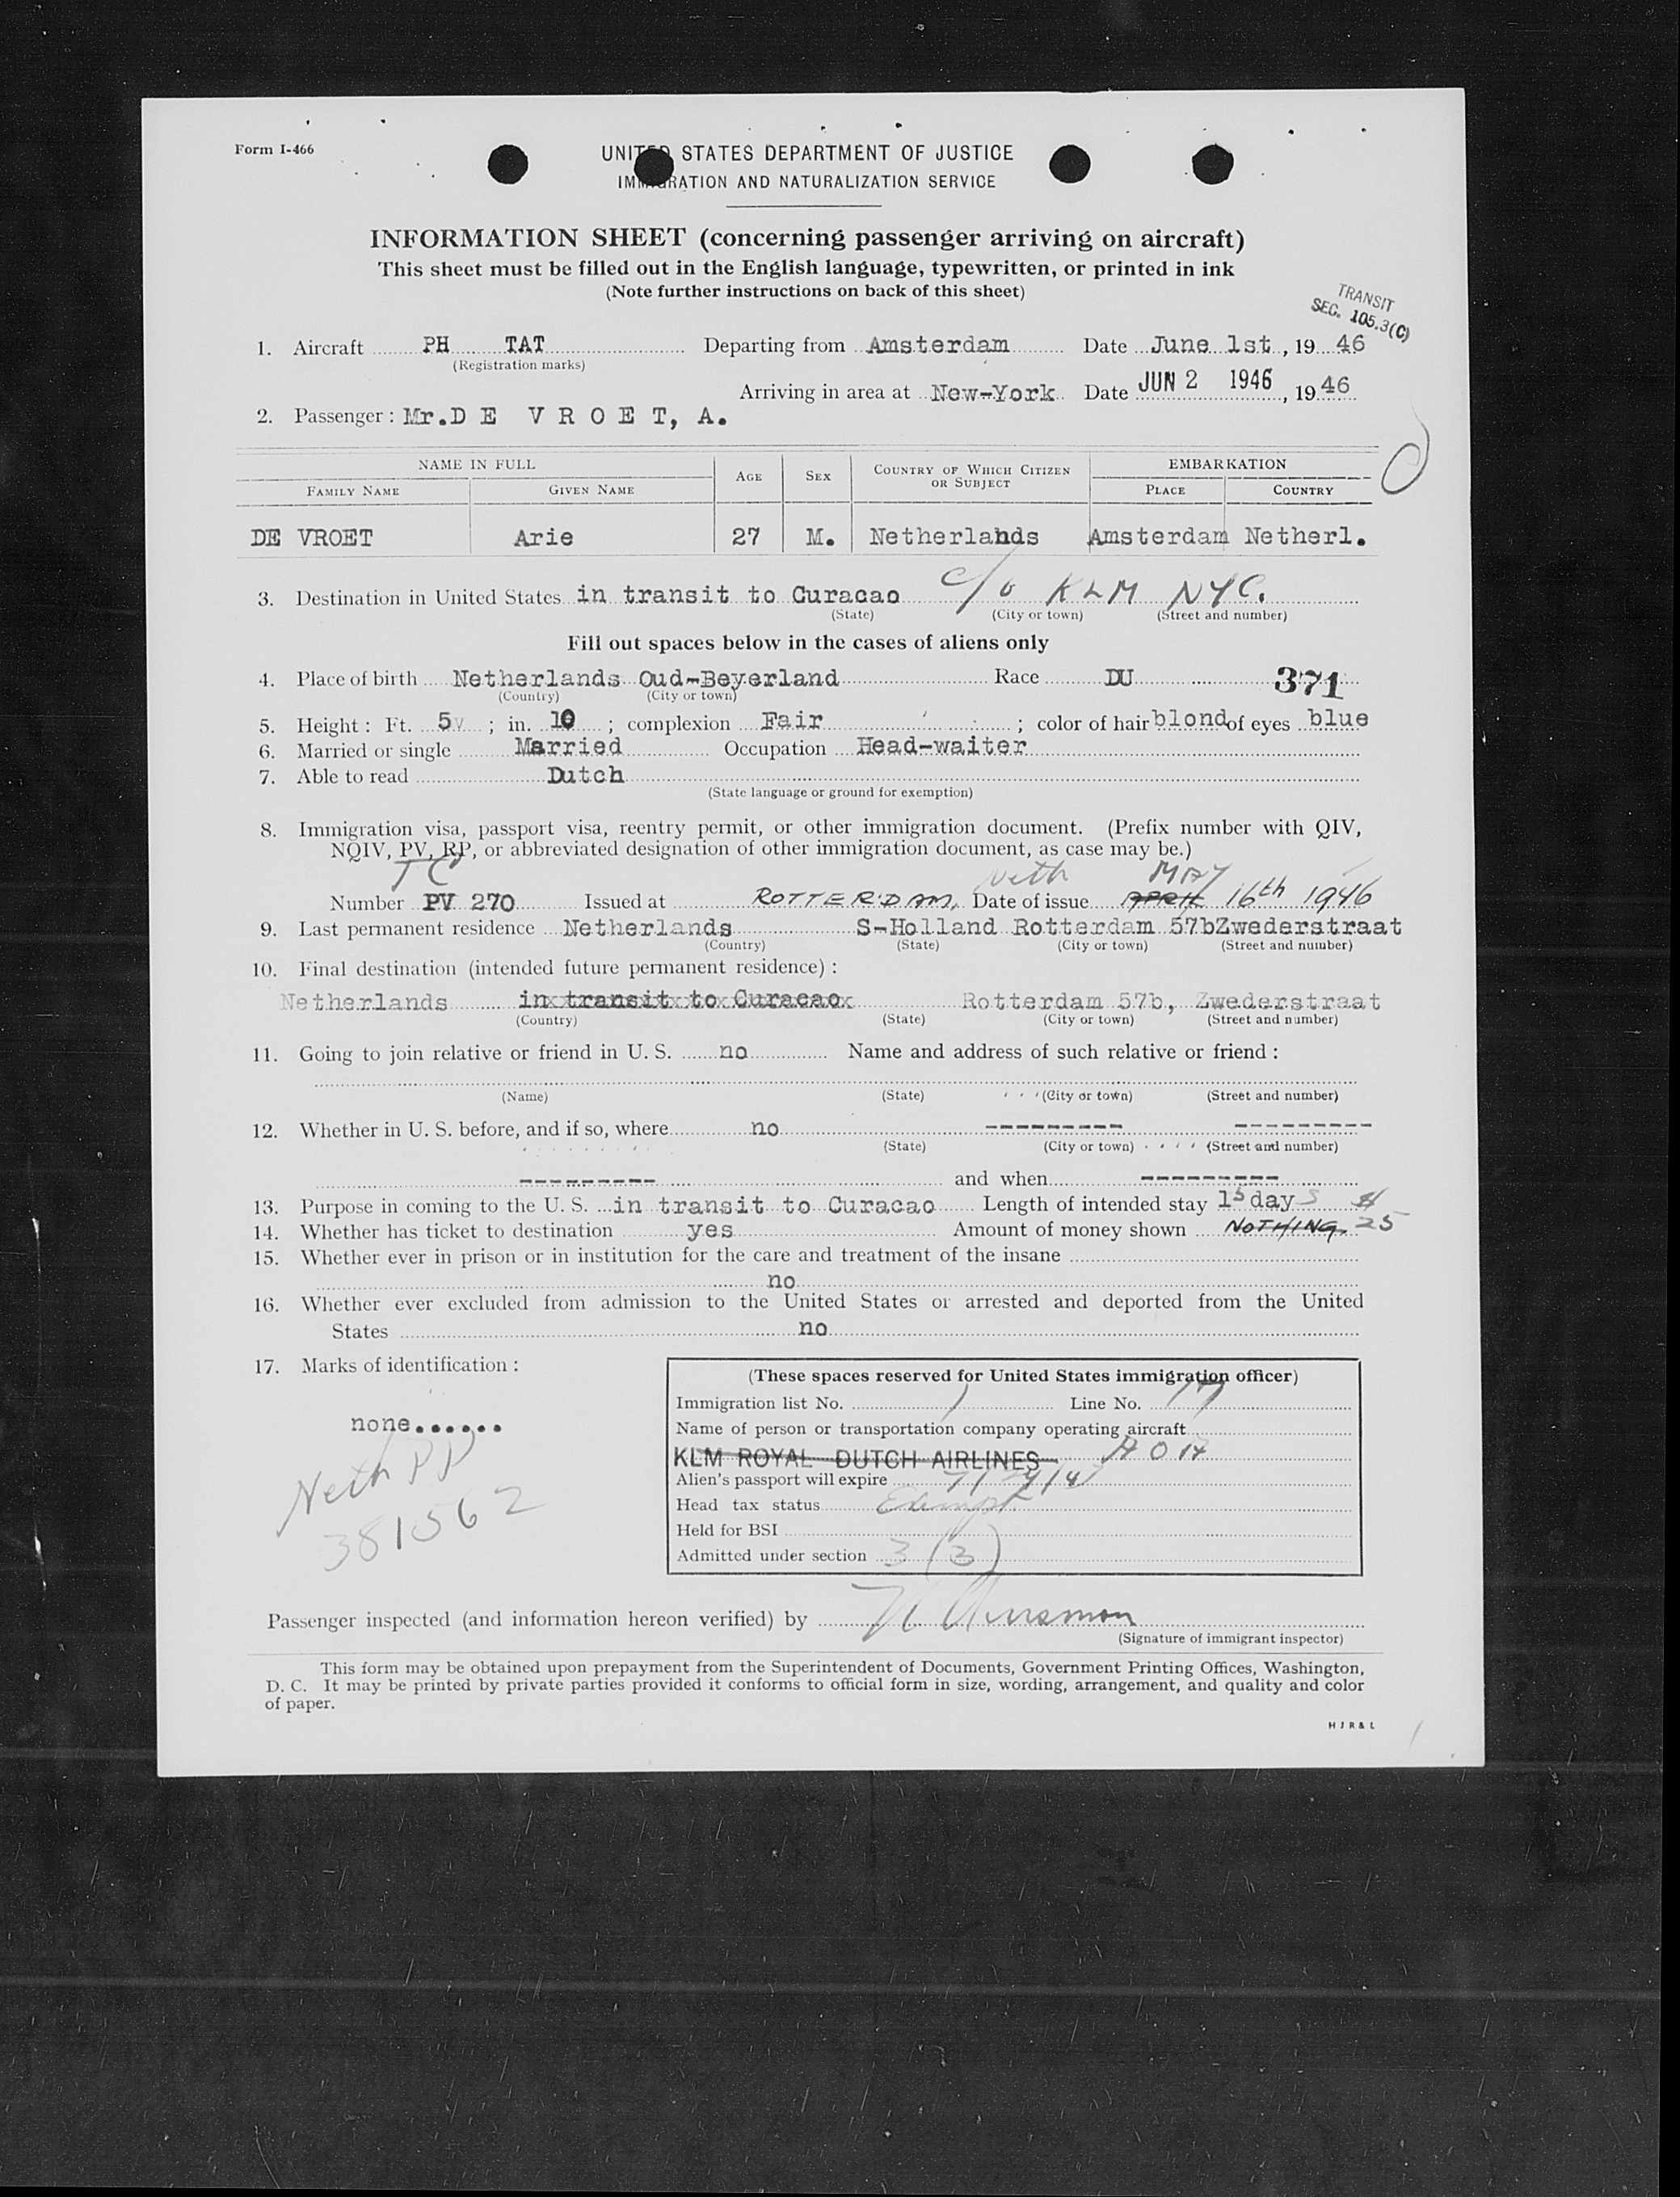 Form I-466
UNITED STATES DEPARTMENT OF JUSTICE
IMMIGRATION AND NATURALIZATION SERVICE
INFORMATION SHEET (concerning passenger arriving on aircraft)
This sheet must be filled out in the English language, typewritten, or printed in ink
(Note further instructions on back of this sheet)
TRANSIT
SEC. 105.3(C)
1. Aircraft PH TAT Departing from Amsterdam Date June 1st, 19 46
(Registration marks)
Arriving in area at New-York Date JUN 2 1946, 19 46
2. Passenger: Mr.D E V R O E T, A.
NAME IN FULL AGE SEX COUNTRY OF WHICH CITIZEN OR SUBJECT EMBARKATION
FAMILY NAME GIVEN NAME PLACE COUNTRY
DE VROET Arie 27 M. Netherlands Amsterdam Netherl.
3. Destination in United States in transit to Curacao c/o KLM NYC.
(State) (City or town) (Street and number)
Fill out spaces below in the cases of aliens only
4. Place of birth Netherlands Oud-Beyerland Race DU 371
(Country) (City or town)
5. Height: Ft. 5 ; in. 10 ; complexion Fair ; color of hair blond of eyes blue
6. Married or single Married Occupation Head-waiter
7. Able to read Dutch
(State language or ground for exemption)
8. Immigration visa, passport visa, reentry permit, or other immigration document. (Prefix number with QIV,
NQIV, PV, RP, or abbreviated designation of other immigration document, as case may be.)
TC Neth MAY
Number PV 270 Issued at ROTTERDAM, Date of issue APRIL 16th 1946
9. Last permanent residence Netherlands S-Holland Rotterdam 57bZwederstraat
(Country) (State) (City or town) (Street and number)
10. Final destination (intended future permanent residence):
Netherlands in transit to Curacao Rotterdam 57b, Zwederstraat
(Country) (State) (City or town) (Street and number)
11. Going to join relative or friend in U. S. no Name and address of such relative or friend:
(Name) (State) (City or town) (Street and number)
12. Whether in U. S. before, and if so, where no --------- ---------
(State) (City or town) (Street and number)
--------- and when ---------
13. Purpose in coming to the U. S. in transit to Curacao Length of intended stay 15 days
14. Whether has ticket to destination yes Amount of money shown NOTHING. $25
15. Whether ever in prison or in institution for the care and treatment of the insane
no
16. Whether ever excluded from admission to the United States or arrested and deported from the United
States no
17. Marks of identification:
none......
Neth PP
381562
(These spaces reserved for United States immigration officer)
Immigration list No. 1 Line No. 17
Name of person or transportation company operating aircraft
KLM ROYAL DUTCH AIRLINES
Alien's passport will expire
Head tax status Exempt
Held for BSI
Admitted under section 3 (3)
Passenger inspected (and information hereon verified) by
(Signature of immigrant inspector)
This form may be obtained upon prepayment from the Superintendent of Documents, Government Printing Offices, Washington,
D. C. It may be printed by private parties provided it conforms to official form in size, wording, arrangement, and quality and color
of paper.
H J R & L